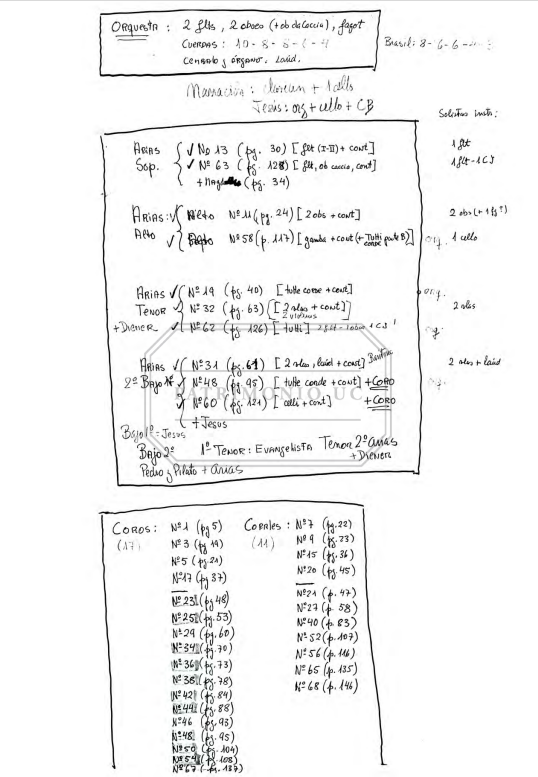 ORQUESTA : 2 flts, 2 oboes (+ ob da Caccia), fagot
CUERDAS : 10 - 8 - 8 - - 4
Cembalo y órgano. Laúd.
Brasil: 8 - 6 - 6 -
Narración : + 1 cello
Jesús : org + cello + CB
Solistas instr :
ARIAS Sop.
✓ Nº 13 (pg. 30) [ flt (I-II) + cont ] 1 flt
✓ Nº 63 (pg. 128) [ flt, ob caccia, cont ] 1 flt - 1 CI
+ (pg. 34)
ARIAS : Alto
✓ Alto Nº 11 (pg. 24) [ 2 obs + cont ] 2 obs (+ 1 fg?)
✓ Nº 58 (p. 117) [ gamba + cont (+ Tutti corde parte B) ] org. 1 cello
ARIAS TENOR + DIENER
✓ Nº 19 (pg. 40) [ tutte corde + cont ] org.
✓ Nº 32 (pg. 63) [ 2 vlas + cont ] 2 vlas
2 violas
✓ Nº 62 (pg. 126) [ tutti ]
ARIAS 2º Bajo
✓ Nº 31 (pg. 61) [ 2 vlas, laúd + cont ] 2 vlas + laúd
✓ Nº 48 (pg. 95) [ tutte corde + cont ] + CORO
✓ Nº 60 (pg. 121) [ celli + cont ] + CORO
+ Jesus
PATRIMONIO UC
Bajo 1º = Jesus
Bajo 2º 1º TENOR : EVANGELISTA Tenor 2º arias
+ DIENER
Pedro y Pilato + arias
COROS : Nº 1 (pg 5)
(17) Nº 3 (pg 19)
Nº 5 (pg 21)
Nº 17 (pg 37)
Nº 23 (pg 48)
Nº 25 (pg. 53)
Nº 29 (pg. 60)
Nº 34 (pg. 70)
Nº 36 (pg. 73)
Nº 38 (pg. 78)
Nº 42 (pg. 84)
Nº 44 (pg. 88)
Nº 46 (pg. 93)
Nº 48 (pg. 95)
Nº 50 (pg. 104)
Nº 54 (pg. 108)
Nº 67 (pg. 137)
CORALES : Nº 7 (pg. 22)
(11) Nº 9 (pg. 23)
Nº 15 (pg. 36)
Nº 20 (pg. 45)
Nº 21 (p. 47)
Nº 27 (p. 58)
Nº 40 (p. 83)
Nº 52 (p. 107)
Nº 56 (p. 116)
Nº 65 (p. 135)
Nº 68 (p. 146)